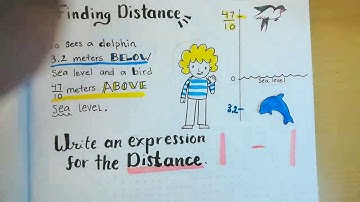 Finding Distance
sees a dolphin
3.2 meters BELOW
Sea level and a bird
47/10 meters ABOVE
Sea level.
Write an expression
for the Distance.
47/10
0
Sea level
3.2-
| - |